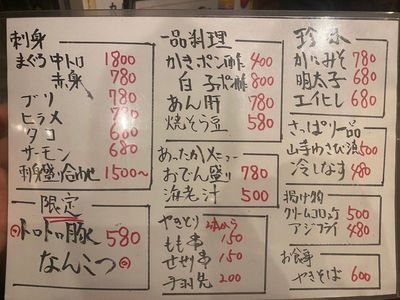 刺身
まぐろ中トロ 1800
赤身 780
ブリ 780
ヒラメ 780
タコ 680
サーモン 680
刺身盛り合わせ 1500〜
限定
トロトロ豚
なんこつ 580
一品料理
かきポン酢 400
白子ポン酢 800
あん肝 780
焼そら豆 580
あったかメニュー
おでん盛り 780
海老汁 500
やきとり 2本から
もも串 150
せせり串 150
手羽先 200
珍味
かにみそ 780
明太子 680
エイヒレ 680
さっぱり一品
山芋わさび漬 500
冷しなす 480
揚げ物
クリームコロッケ 500
アジフライ 480
お食事
やきそば 600